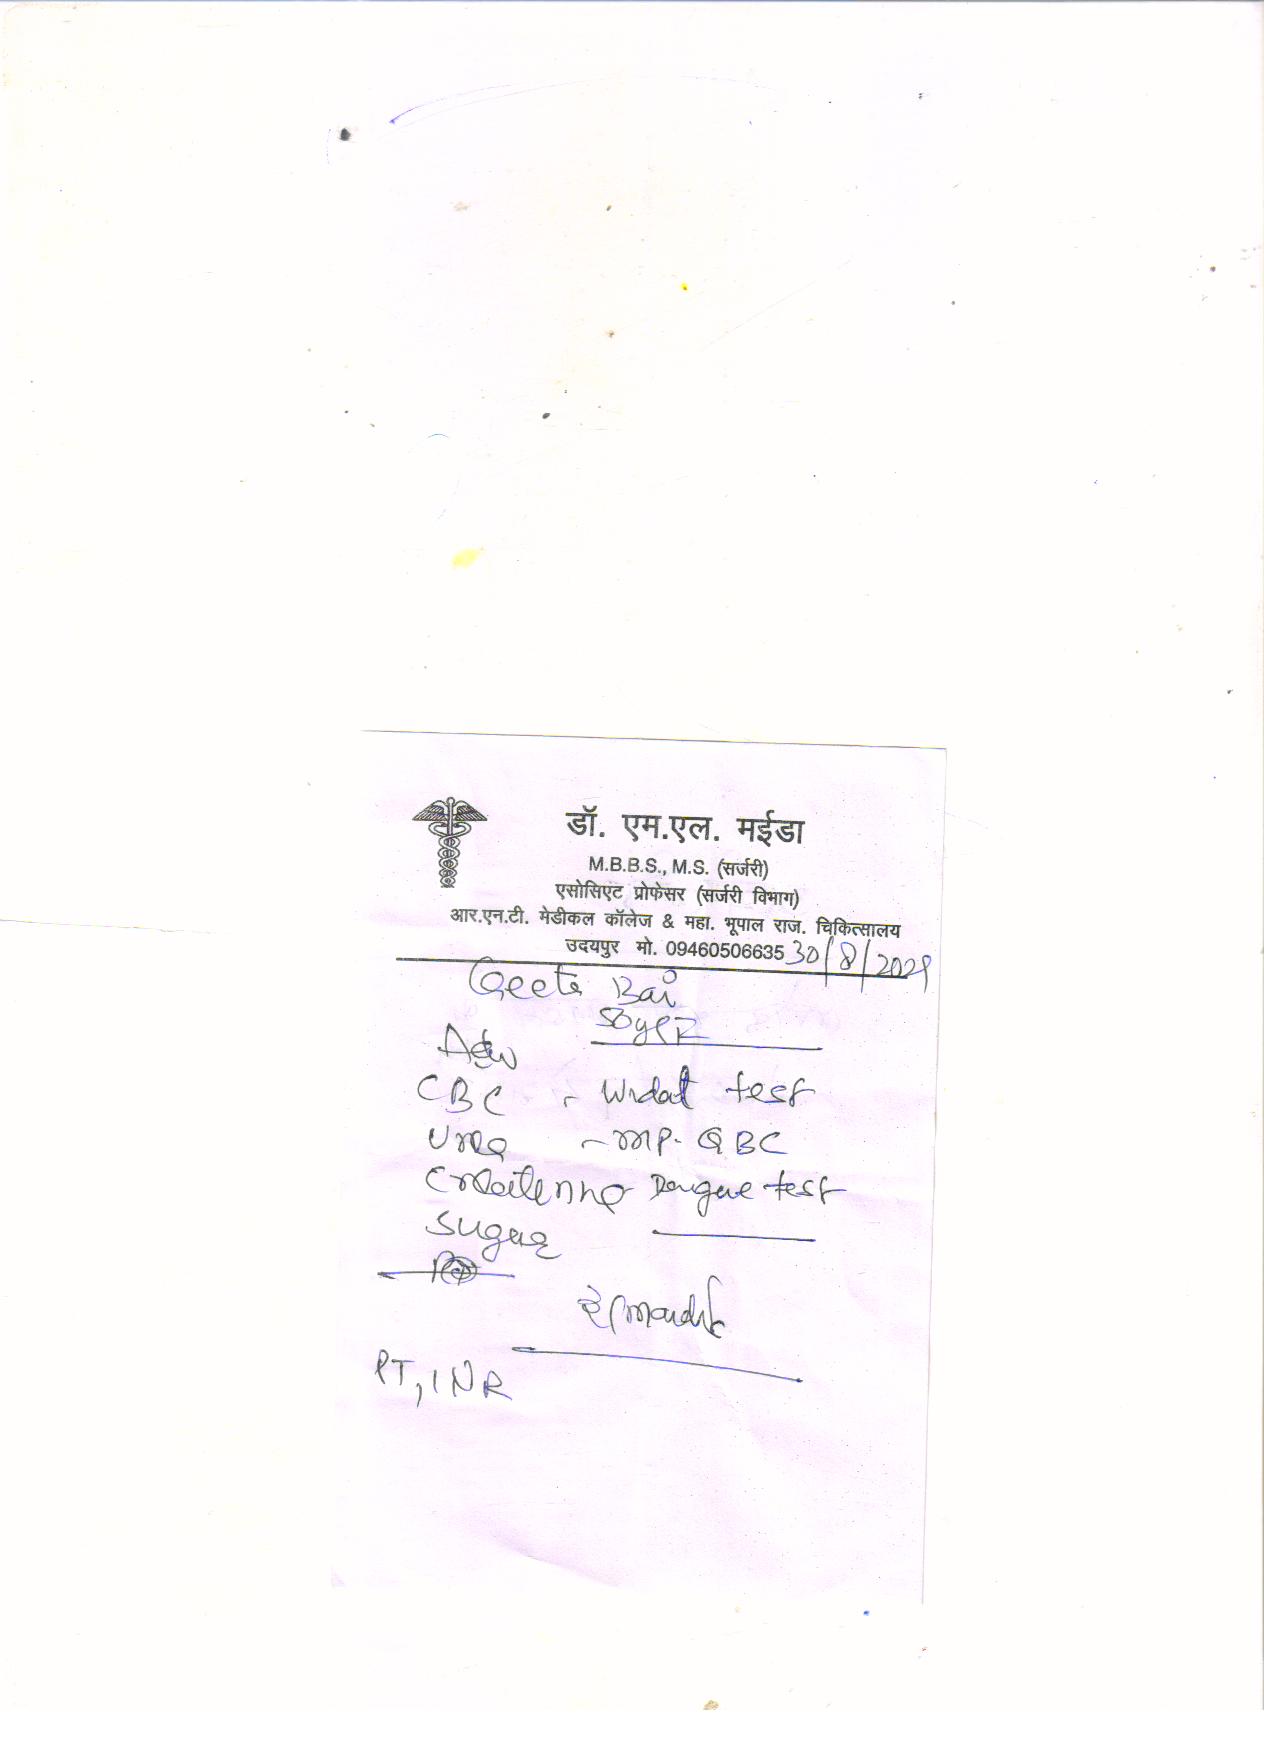 डॉ. एम.एल. मईडा
M.B.B.S., M.S. (सर्जरी)
एसोसिएट प्रोफेसर (सर्जरी विभाग)
आर.एन.टी. मेडीकल कॉलेज & महा. भूपाल राज. चिकित्सालय
उदयपुर मो. 09460506635 30/8/2021
Geeta Bai
Adv
CBC - Widal test
Urea - MP-QBC
Dengue test
Sugar
PT, INR